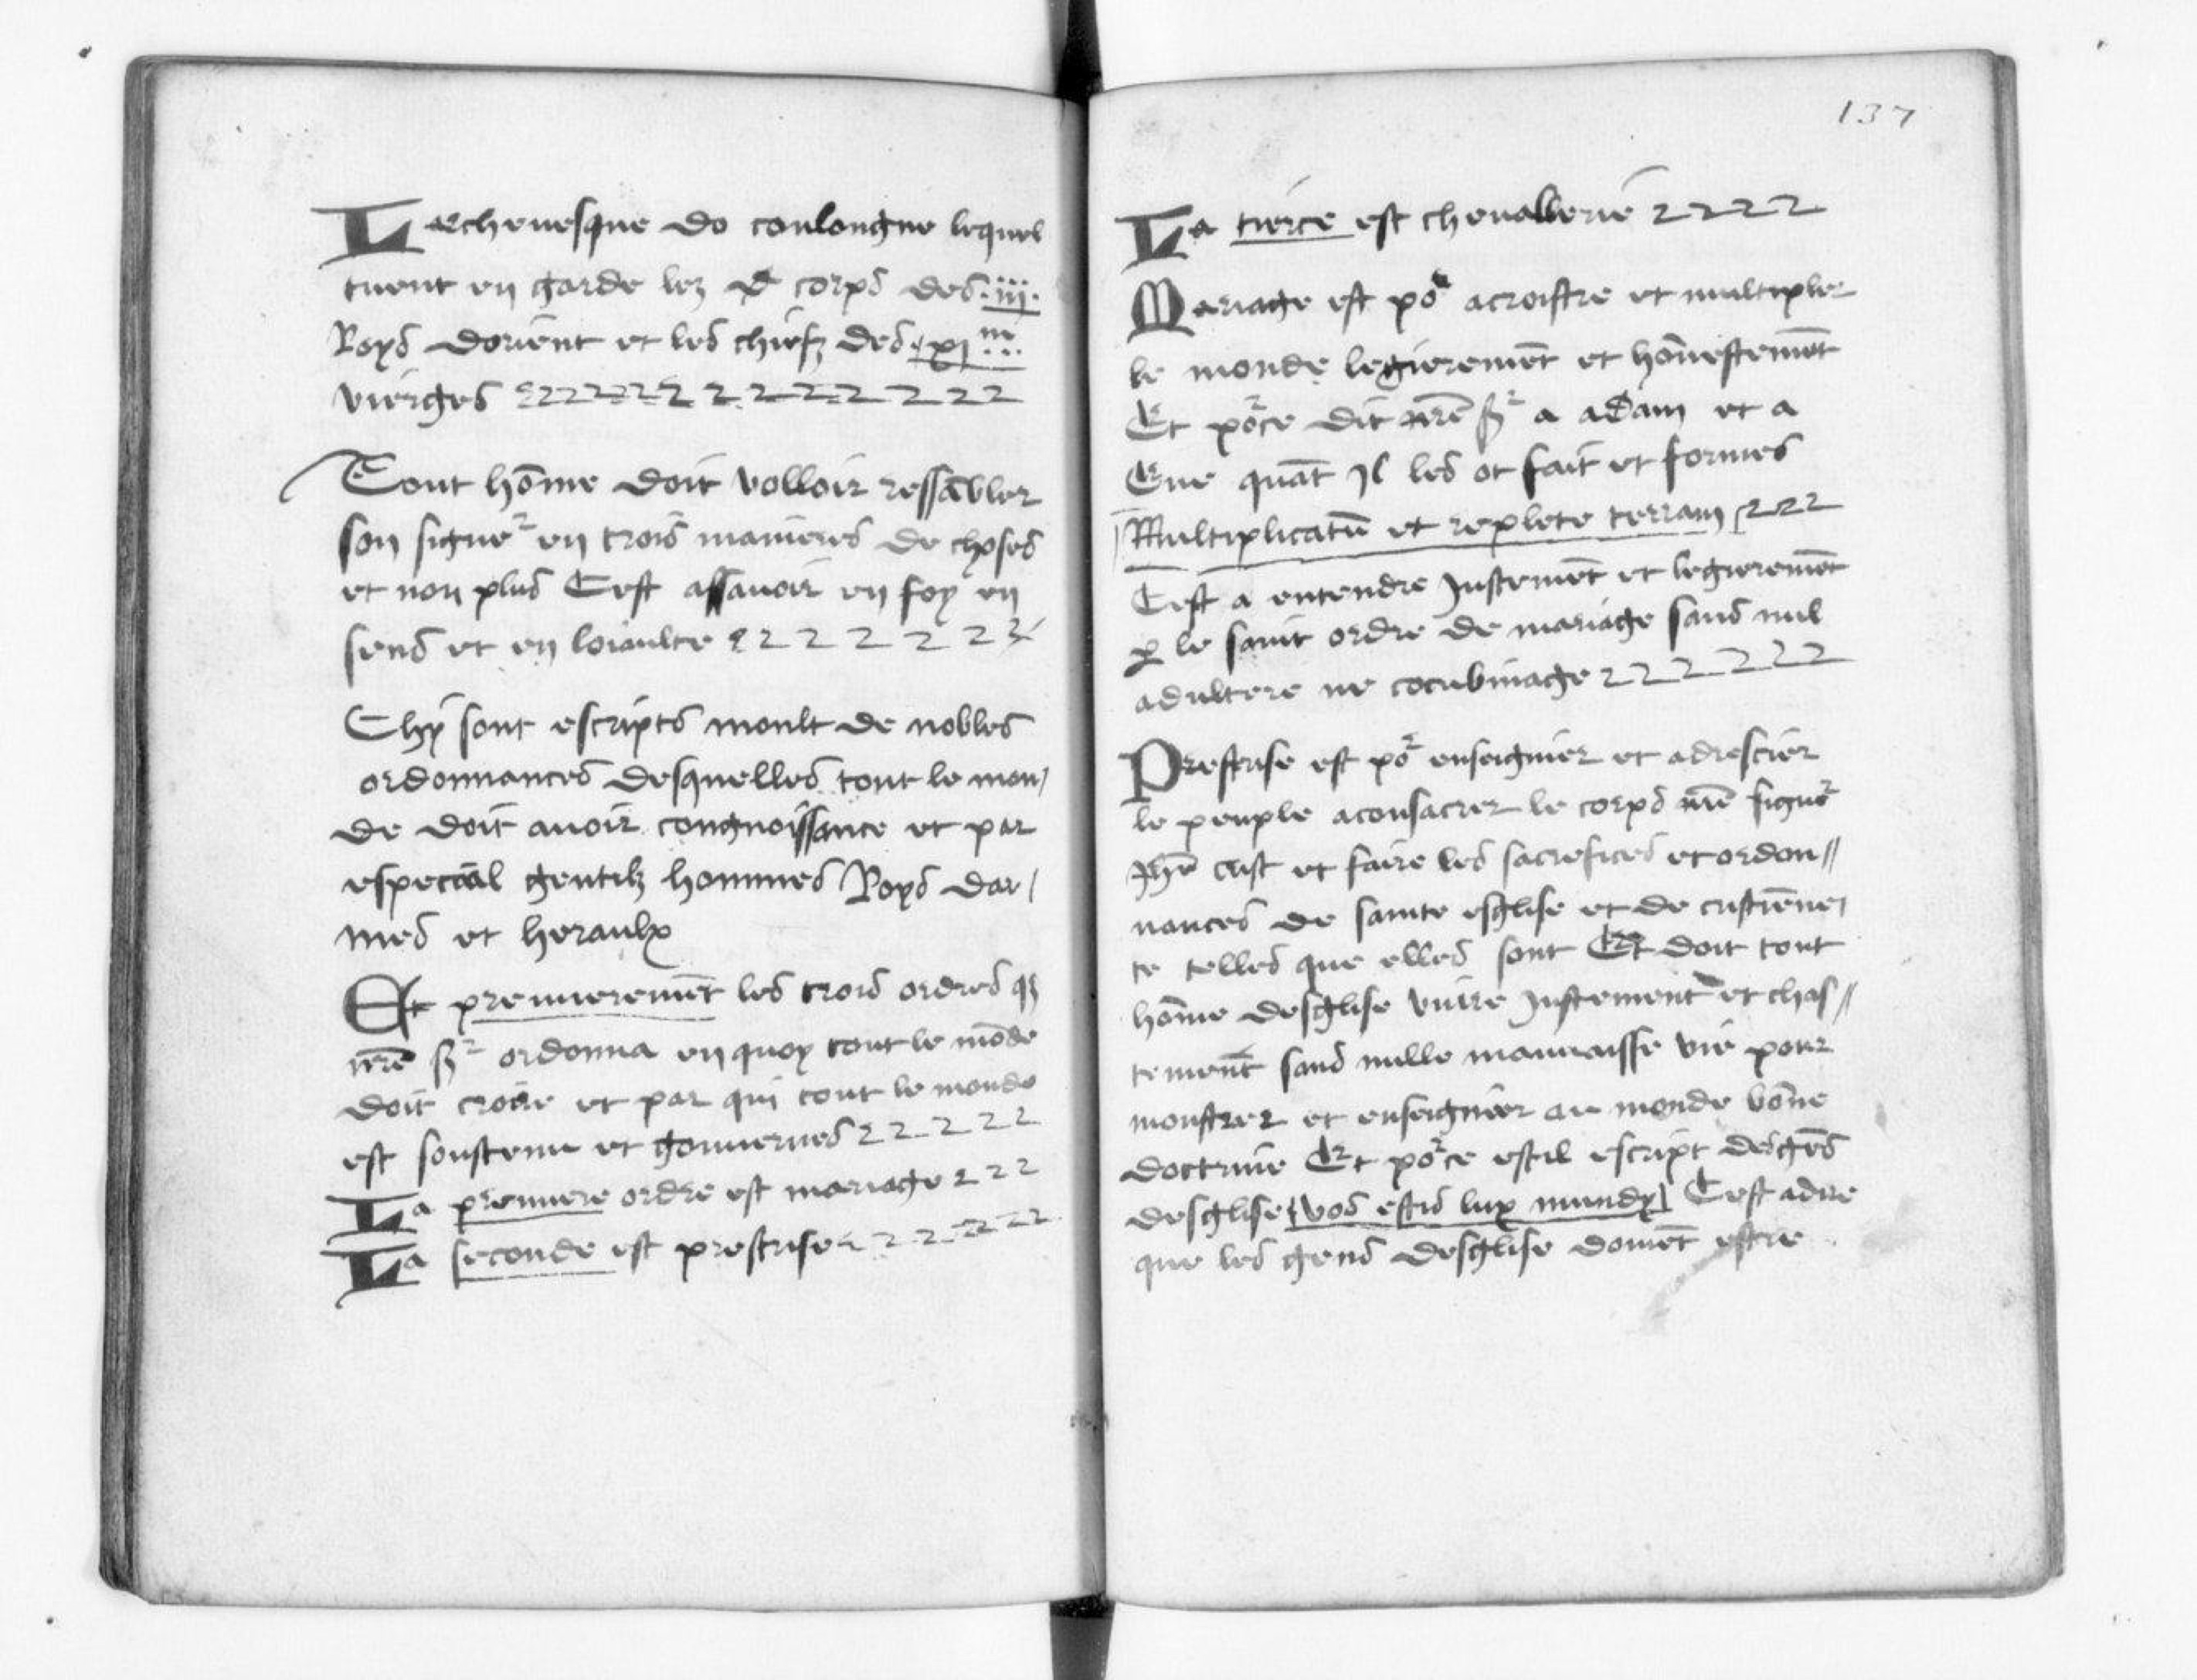 Larchevesque de coulongne lequel
tient en garde lez corps des .iii.
Roys dorient et les chiefz des .xi m
vierges
Tout hōme doit volloir ressābler
son signe2 en trois manieres de choses
et non plus Cest assavoir en foy en
sens et en loiaulte
Chy sont escripts moult de nobles
ordonnances desquelles tout le mon/
de doit avoir congnoissance et par
especial gentilz hommes Roys dar/
mes et heraulx
Et premieremēt les trois ordres q̄
nr̄e sr ordonna en quoy tout le mōde
doit croire et par qui tout le monde
est soustenu et gouvernes
La premiere ordre est mariage
La seconde est prestrise
137
La tierce est chevallerie
Mariage est po2 acroistre et multiplier
le monde legieremēt et hōnestemēt
Et po2ce dit nr̄e sr a adam et a
Eve quāt Jl les ot fait et formes
Multiplicatū et replete terram
Cest a entendre Justemēt et legieremēt
p le saint ordre de mariage sans nul
adultere ne cocubinage
Prestrise est po2 enseignier et adrescier
le peuple aconsacrer le corps nr̄e signe2
Jhū crist et faire les sacrefices et ordon//
nances de sainte esglise et de cristiēne/
te telles que elles sont Et doit tout
hōme desglise vivre Justement et chas//
tement sans nulle mauvaisse vie pour
monstrer et enseignier au monde bōne
doctrine Et po2ce est il escript des gēs
desglise vos estis lux mundy Cest adire
que les gens desglise doivēt estre